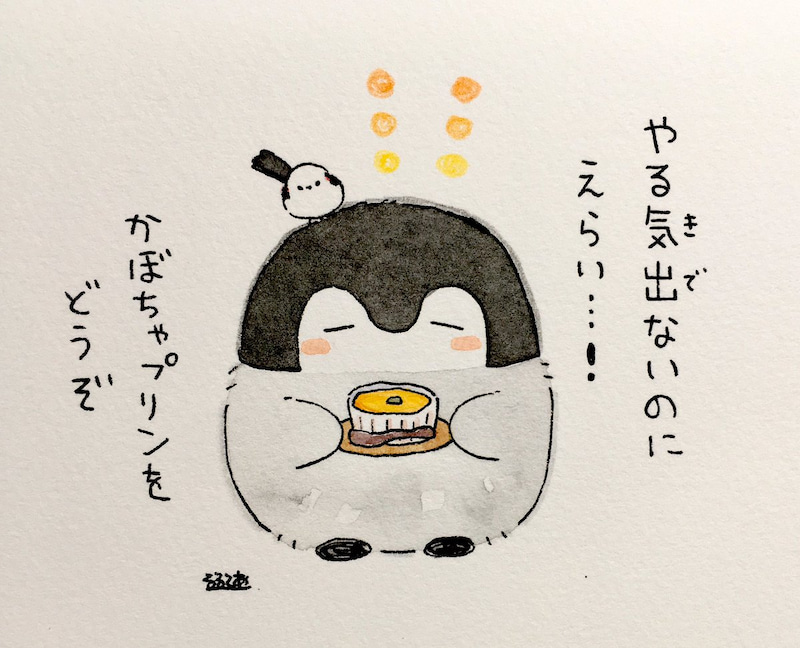 やる気出ないのに
きで
えらい…!
かぼちゃプリンを
どうぞ
るるてあ